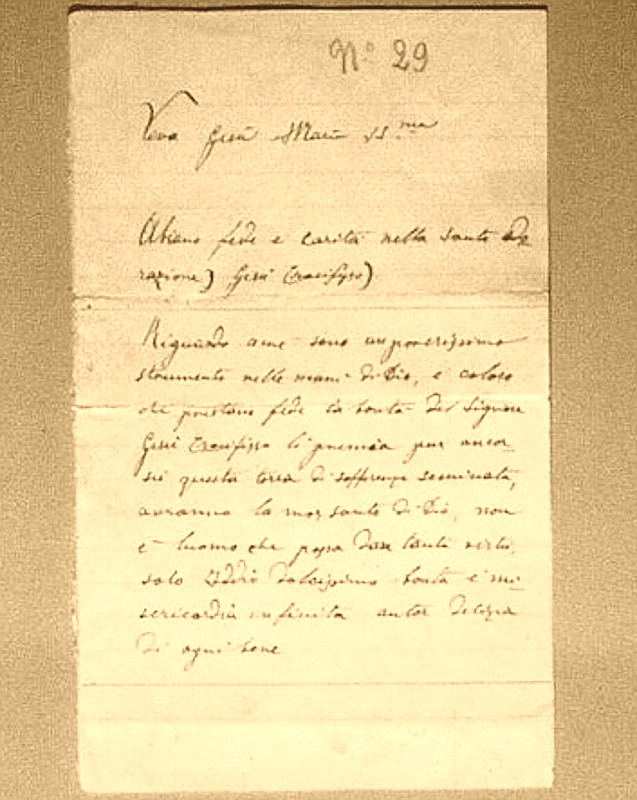 N° 29
Viva Gesù Maria SS.ma
Abiano fede e carità nella santa
razione) Gesù Crocifisso)
Riguardo ame sono un poverissimo
strumento nelle mani di Dio, e coloro
che prestano fede la bontà del Signore
Gesù Crocifisso li premia pur ancor
su questa terra di sofferenza seminata,
avranno la santo di Dio, non
è luomo che possa dare tanti
solo Iddio dolcissimo bontà e mi
sericordia infinita autor
di ogni bene